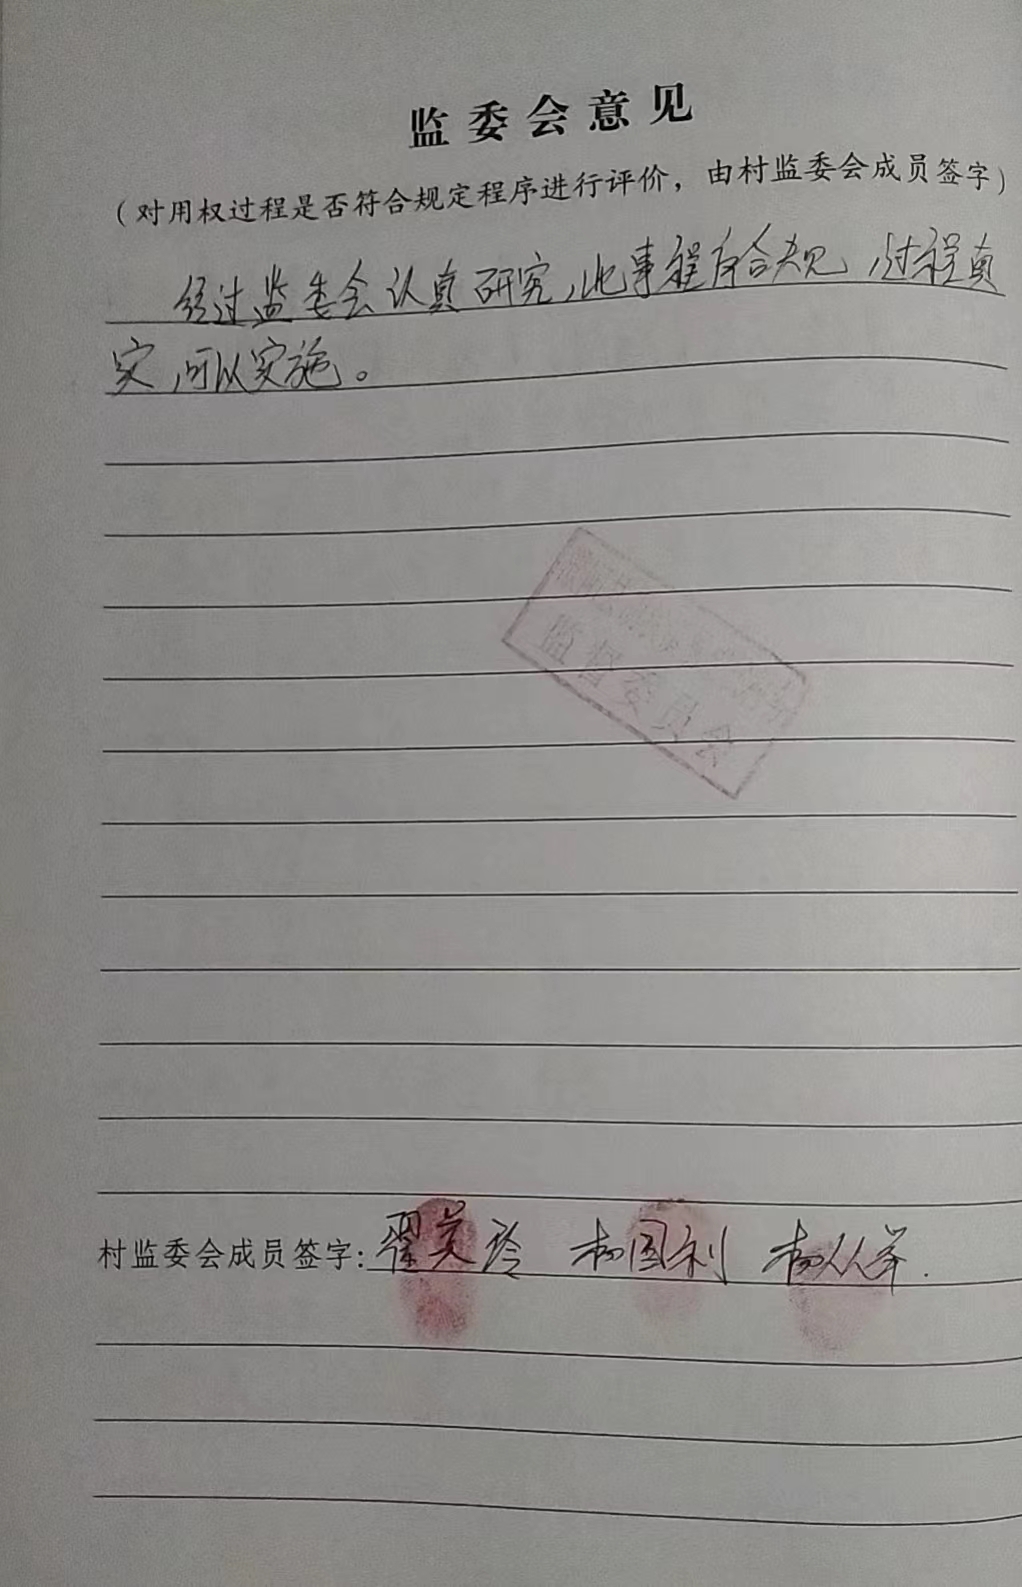 监委会意见
（对用权过程是否符合规定程序进行评价，由村监委会成员签字）
经过监委会认真研究，此事程序合规，过程真
实，可以实施。
监督委员会
村监委会成员签字：翟美玲 杨国利 杨从举.